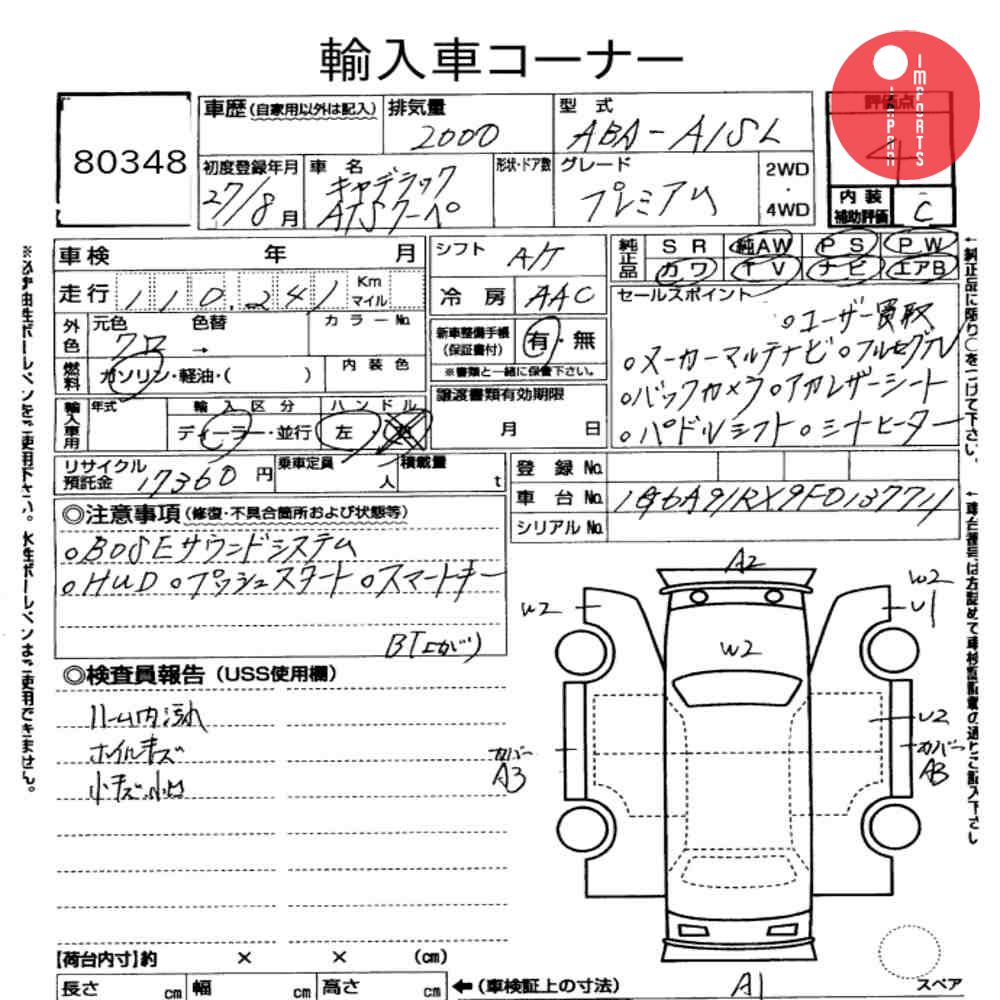 輸入車コーナー
JAPAN IMPORTS
80348
車歴(自家用以外は記入) 排気量 2000 型式 ABA-A1SL
評価点 4
初度登録年月 27/8月 車名 キャデラック ATSクーペ 形状・ドア数 グレード プレミアム 2WD・4WD
内装補助評価 C
車検 年 月
走行 110,241 Km マイル
外色 元色 クロ 色替 → カラーNo.
燃料 ガソリン・軽油・( ) 内装色
輸入車用 年式 輸入区分 ディーラー・並行 ハンドル 左・右
リサイクル預託金 17360円 乗車定員 人 積載量 t
シフト A/T
冷房 AAC
新車整備手帳(保証書付) 有・無
※書類と一緒に保管下さい。
譲渡書類有効期限 月 日
純正品 SR 純AW PS PW
カワ TV ナビ エアB
セールスポイント
○ユーザー買取
○メーカーマルチナビ ○フルセグTV
○バックカメラ ○アカレザーシート
○パドルシフト ○シートヒーター
登録No.
車台No. 1G6A91RX9F0137711
シリアルNo.
◎注意事項(修復・不具合箇所および状態等)
○BOSEサウンドシステム
○HUD ○プッシュスタート ○スマートキー
BT(上がり)
◎検査員報告(USS使用欄)
ルーム内汚れ
ホイルキズ
小キズ・小凹
A2
W2
W2
U1
W2
U2
カバー A3
カバー A3
A1
スペア
【荷台内寸】約 × × (cm)
長さ cm 幅 cm 高さ cm ←(車検証上の寸法)
※必ず油性ボールペンをご使用下さい。水性ボールペンはご使用できません。
←純正品に限り○をつけて下さい。
←車台番号は左詰めで車検証記載の通りご記入下さい